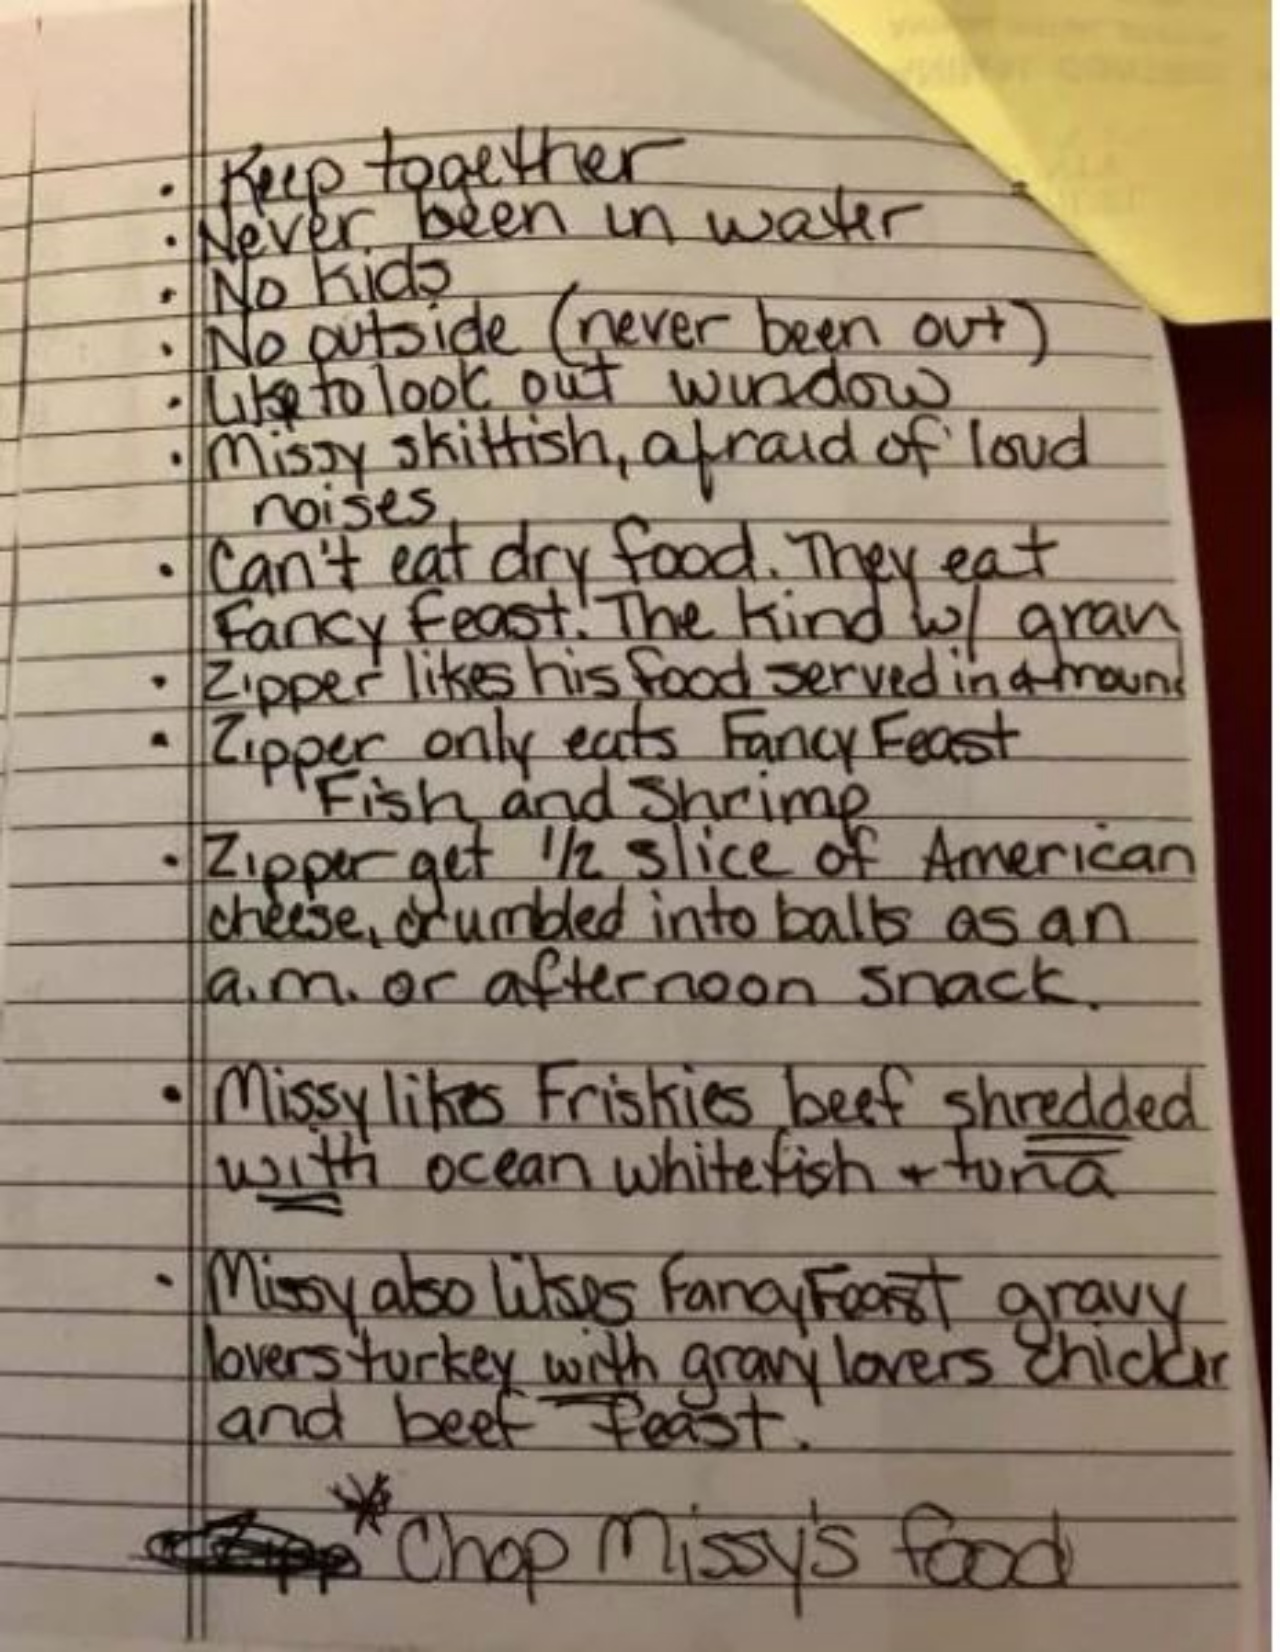 • Keep together
• Never been in water
• No kids
• No outside (never been out)
• Like to look out window
• Missy skittish, afraid of loud
noises
• Can't eat dry food. They eat
Fancy Feast. The kind w/ grav
• Zipper likes his food served in a mound
• Zipper only eats Fancy Feast
Fish and Shrimp
• Zipper get 1/2 slice of American
cheese, crumbled into balls as an
a.m. or afternoon snack.
• Missy likes Friskies beef shredded
with ocean whitefish + tuna
• Missy also likes Fancy Feast gravy
lovers turkey with gravy lovers chicken
and beef feast.
* Chop Missy's food